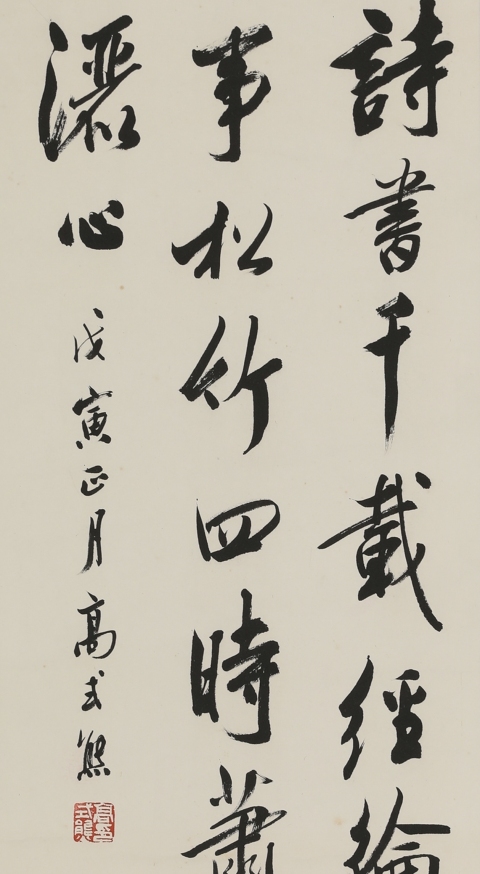 詩書千載經綸
事松竹四時蕭
灑心
戊寅正月高式熊
高式熊印